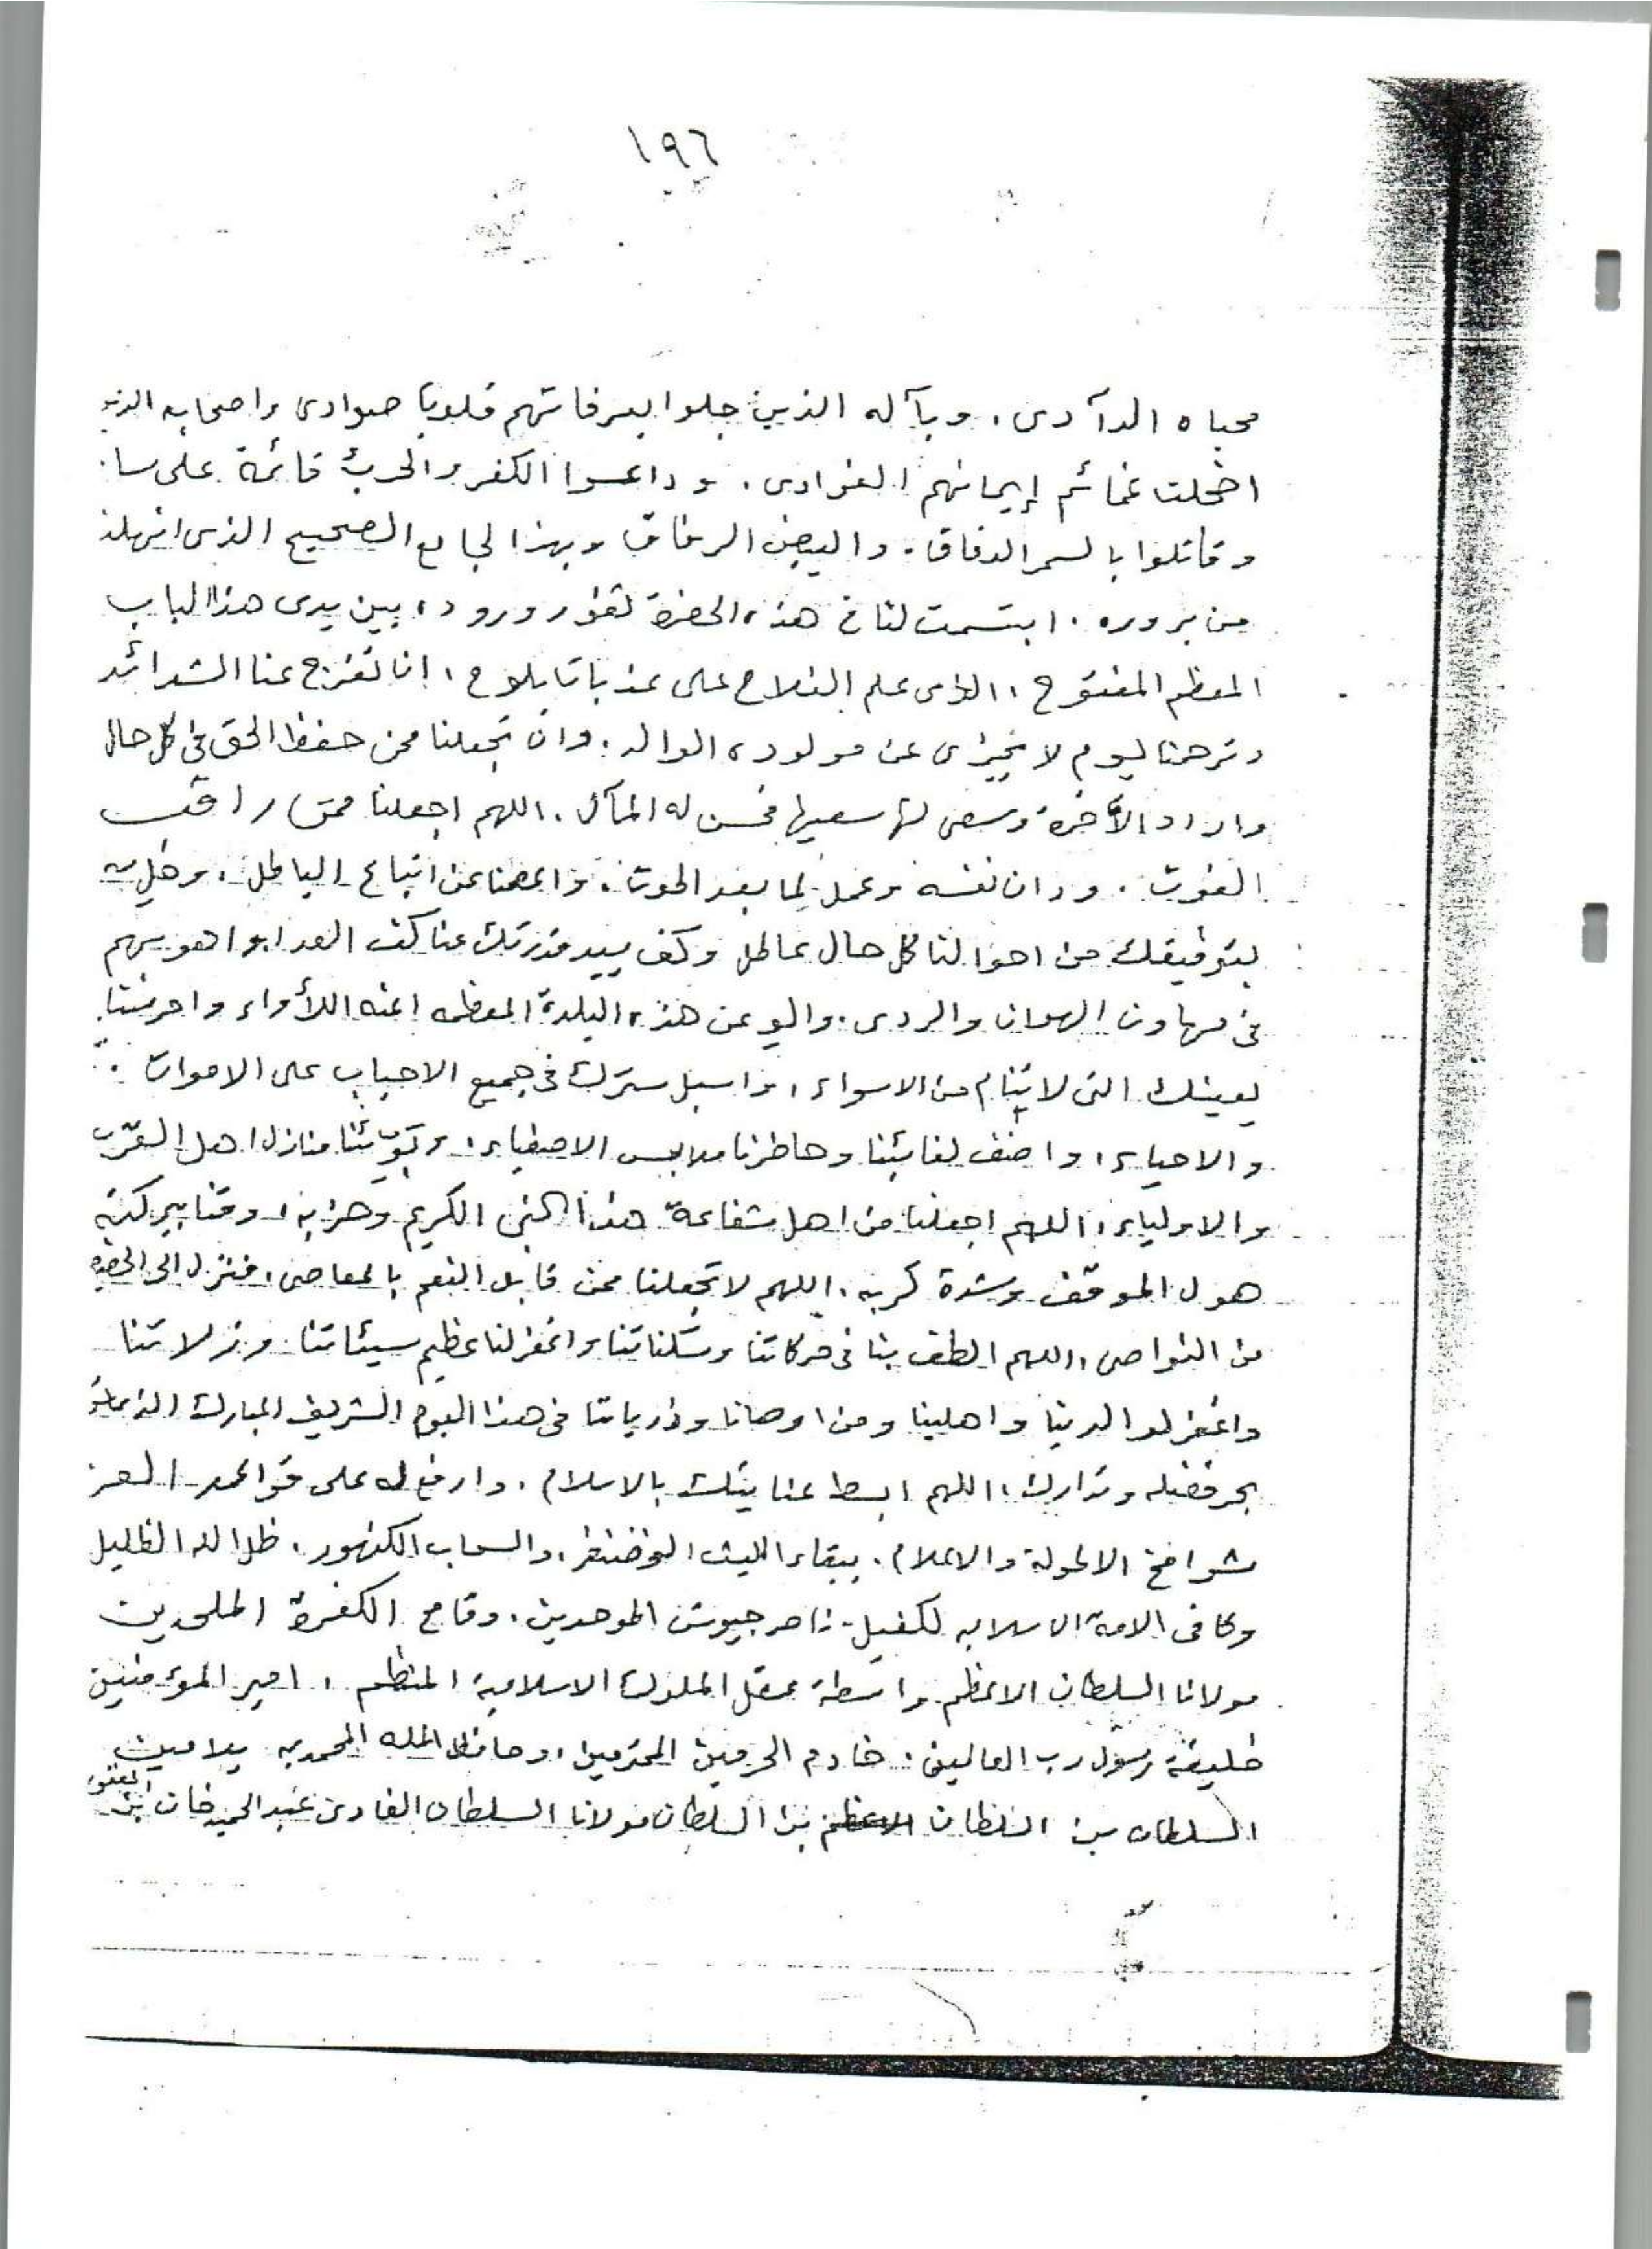 ١٩٦
محياه الدآدى، وبآله الذين جلوا بعرفاتهم قلوبا صوادى واصحابه الذين
اضحلت غمائم إيمانهم الغوادى. وداعسوا الكفر والحرب قائمة على سا
وقاتلوا بالسمر الدقاق. والبيض الرقاق وبهذا الجامع الصحيح الذى انهلنا
من بروره. ابتسمت لنا فى هذه الحضرة ثغور وروده بين يدى هذا الباب
المعظم المفتوح، الذى علم الفلاح على عذباته يلوح، ان تفرج عنا الشدائد
وترحمنا ليوم لا يجزى عن مولوده الوالد. وان تجعلنا ممن حفظ الحق فى كل حال
واراد الآخرة وسعى لها سعيها فحسن له المآل. اللهم اجعلنا ممن راقب
الفوت. ودان نفسه وعمل لما بعد الموت. واعصمنا عن اتباع الباطل. وحلى
بتوفيقك من احوالنا كل حال عاطل وكف بيد قدرتك عنا كف العدا واهو بهم
فى مهاوى الهوان والردى. والو عن هذه البلدة المعظمه اعنه اللأواء واحرسنا
بعينك التى لا تنام من الاسواء، واسبل سترك فى جميع الاحباب على الاموات
والاحياء، واضف لغائبنا وحاضرنا ملابس الاصفياء. وبوّئنا منازل اهل القرب
والاولياء، اللهم اجعلنا من اهل شفاعة هذا النبى الكريم وحزبه، وقنا ببركته
هول الموقف وشدة كربه. اللهم لا تجعلنا ممن قابل النعم بالمعاصى، فنزل الى الحضيض
من النواصى، اللهم الطف بنا فى حركاتنا وسكناتنا واغفر لنا عظيم سيئاتنا وزلاتنا
واغفر لوالدينا واهلينا ومن اوصانا وذرياتنا فى هذا اليوم الشريف المبارك الذى
بحر فضله وتدارك، اللهم ابسط عنايتك بالاسلام. وارفع له على قواعد العز
شوامخ الاطولة والاعلام. ببقاء الليث الغضنفر، والسحاب الكنهور. ظل الله الظليل
وكافى الامة الاسلاميه لكفيل. ناصر جيوش الموحدين. وقامع الكفرة الملحدين
مولانا السلطان الاعظم واسطة عقد الملوك الاسلامية المنظم، امير المؤمنين
خليفة رسول رب العالمين. خادم الحرمين المحترمين، وحافظ المله المحمديه بلا مين
السلطان بن السلطان الاعظم بن السلطان مولانا السلطان الغازى عبد الحميد خان بن